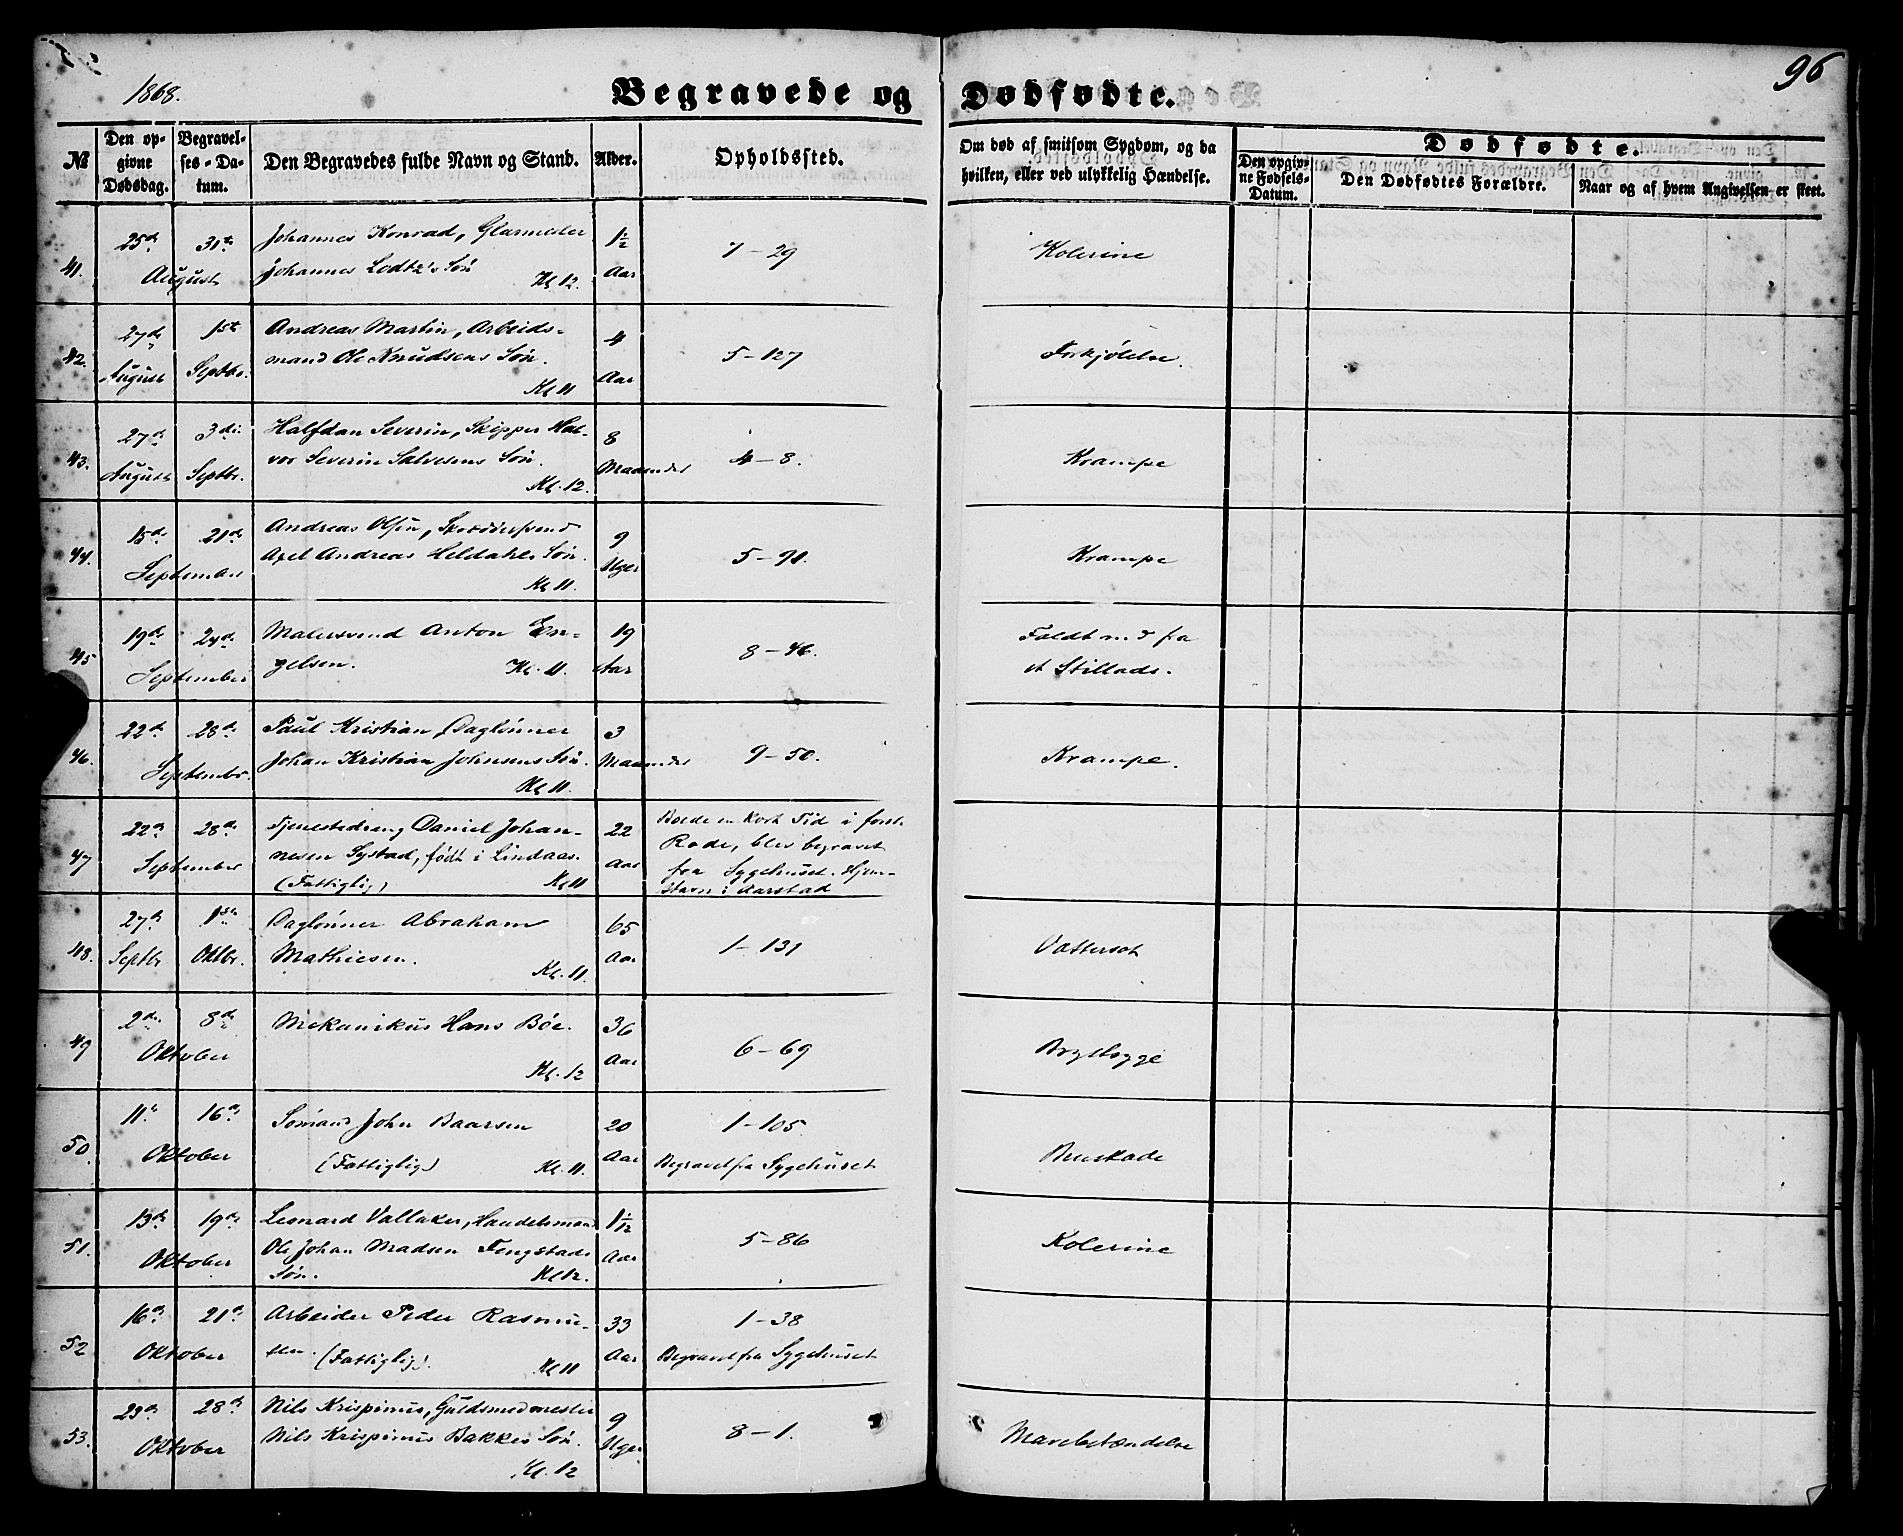 1868.
Begravede og Dødfødte.
96
№
Den opgivne Dødsdag.
Begravelses-Datum.
Den Begravedes fulde Navn og Stand.
Alder.
Opholdssted.
Om død af smitsom Sygdom, og da
hvilken, eller ved ulykkelig Hændelse.
Dødfødte.
Den opgivne Fødsels-Datum.
Den Dødfødtes Forældre.
Naar og af hvem Angivelsen er skeet.
41. 25de 31te August
Johannes Konrad, Glarmester
Johannes Lodtz's Søn Kl 12.
1½ Aar
7-29
Kolerine
42. 27de August 1ste Septbr.
Andreas Martin, Arbeids-
mand Ole Knudsens Søn.
Kl 11
4 Aar
5-127
Forkjølelse.
43. 27de August 3die Septbr.
Halfdan Severin, Skipper Hal-
vor Severin Salvesens Søn.
Kl. 12.
8 Maaneder
4-8.
Krampe
44. 15de 21de September
Andreas Olsen,
Axel Andreas Heldahls Søn.
Kl 11.
9 Uger
5-91.
Krampe
45 19de 24de September
Malersvend Anton En-
gelsen. Kl. 11.
19 Aar
8-46.
Faldt ned fra
et Stillads.
46. 22de 28de Septembr.
Paul Kristian, Daglønner
Johan Kristian Johnsens Søn.
Kl 11.
3 Maaneder
9-50.
Krampe.
47 22de 28de September
Tjenestedreng Daniel Johan-
nesen Systad, født i Lindaas.
(Fattiglig) Kl 11
22 Aar
Boede en kort Tid i forst.
Rode, blev begravet
fra Sygehuset. Hjem-
stavn i Aarstad
48. 27de Septbr 1ste Oktbr.
Daglønner Abraham
Mathiesen. Kl. 11.
65 Aar
1-131
Vattersot
49 2den 8de Oktober
Mekanikus Hans Böe.
Kl. 12
36 Aar
6-69
Brystsyge
50. 11te 16de Oktober
Sømand John Baarsen
(Fattiglig) Kl. 11.
20 Aar
1-105
Begravet fra Sygehuset
Benskade
51. 13de 19de Oktober
Leonard Vallaker, Handelsmand
Ole Johan Madsen Tengstads
Søn. Kl 12.
1 1/12 Aar
5-86
Kolerine
52 16de 21de Oktober
Arbeider Peder Rasmu-
sen. (Fattiglig). Kl 11
33 Aar
1-38
Begravet fra Sygehuset
53. 23de 28de Oktober
Nils Krispinus, Guldsmedmester
Nils Krispinus Bakkes Søn.
Kl. 12
9 Uger
8-1.
Mavebetændelse